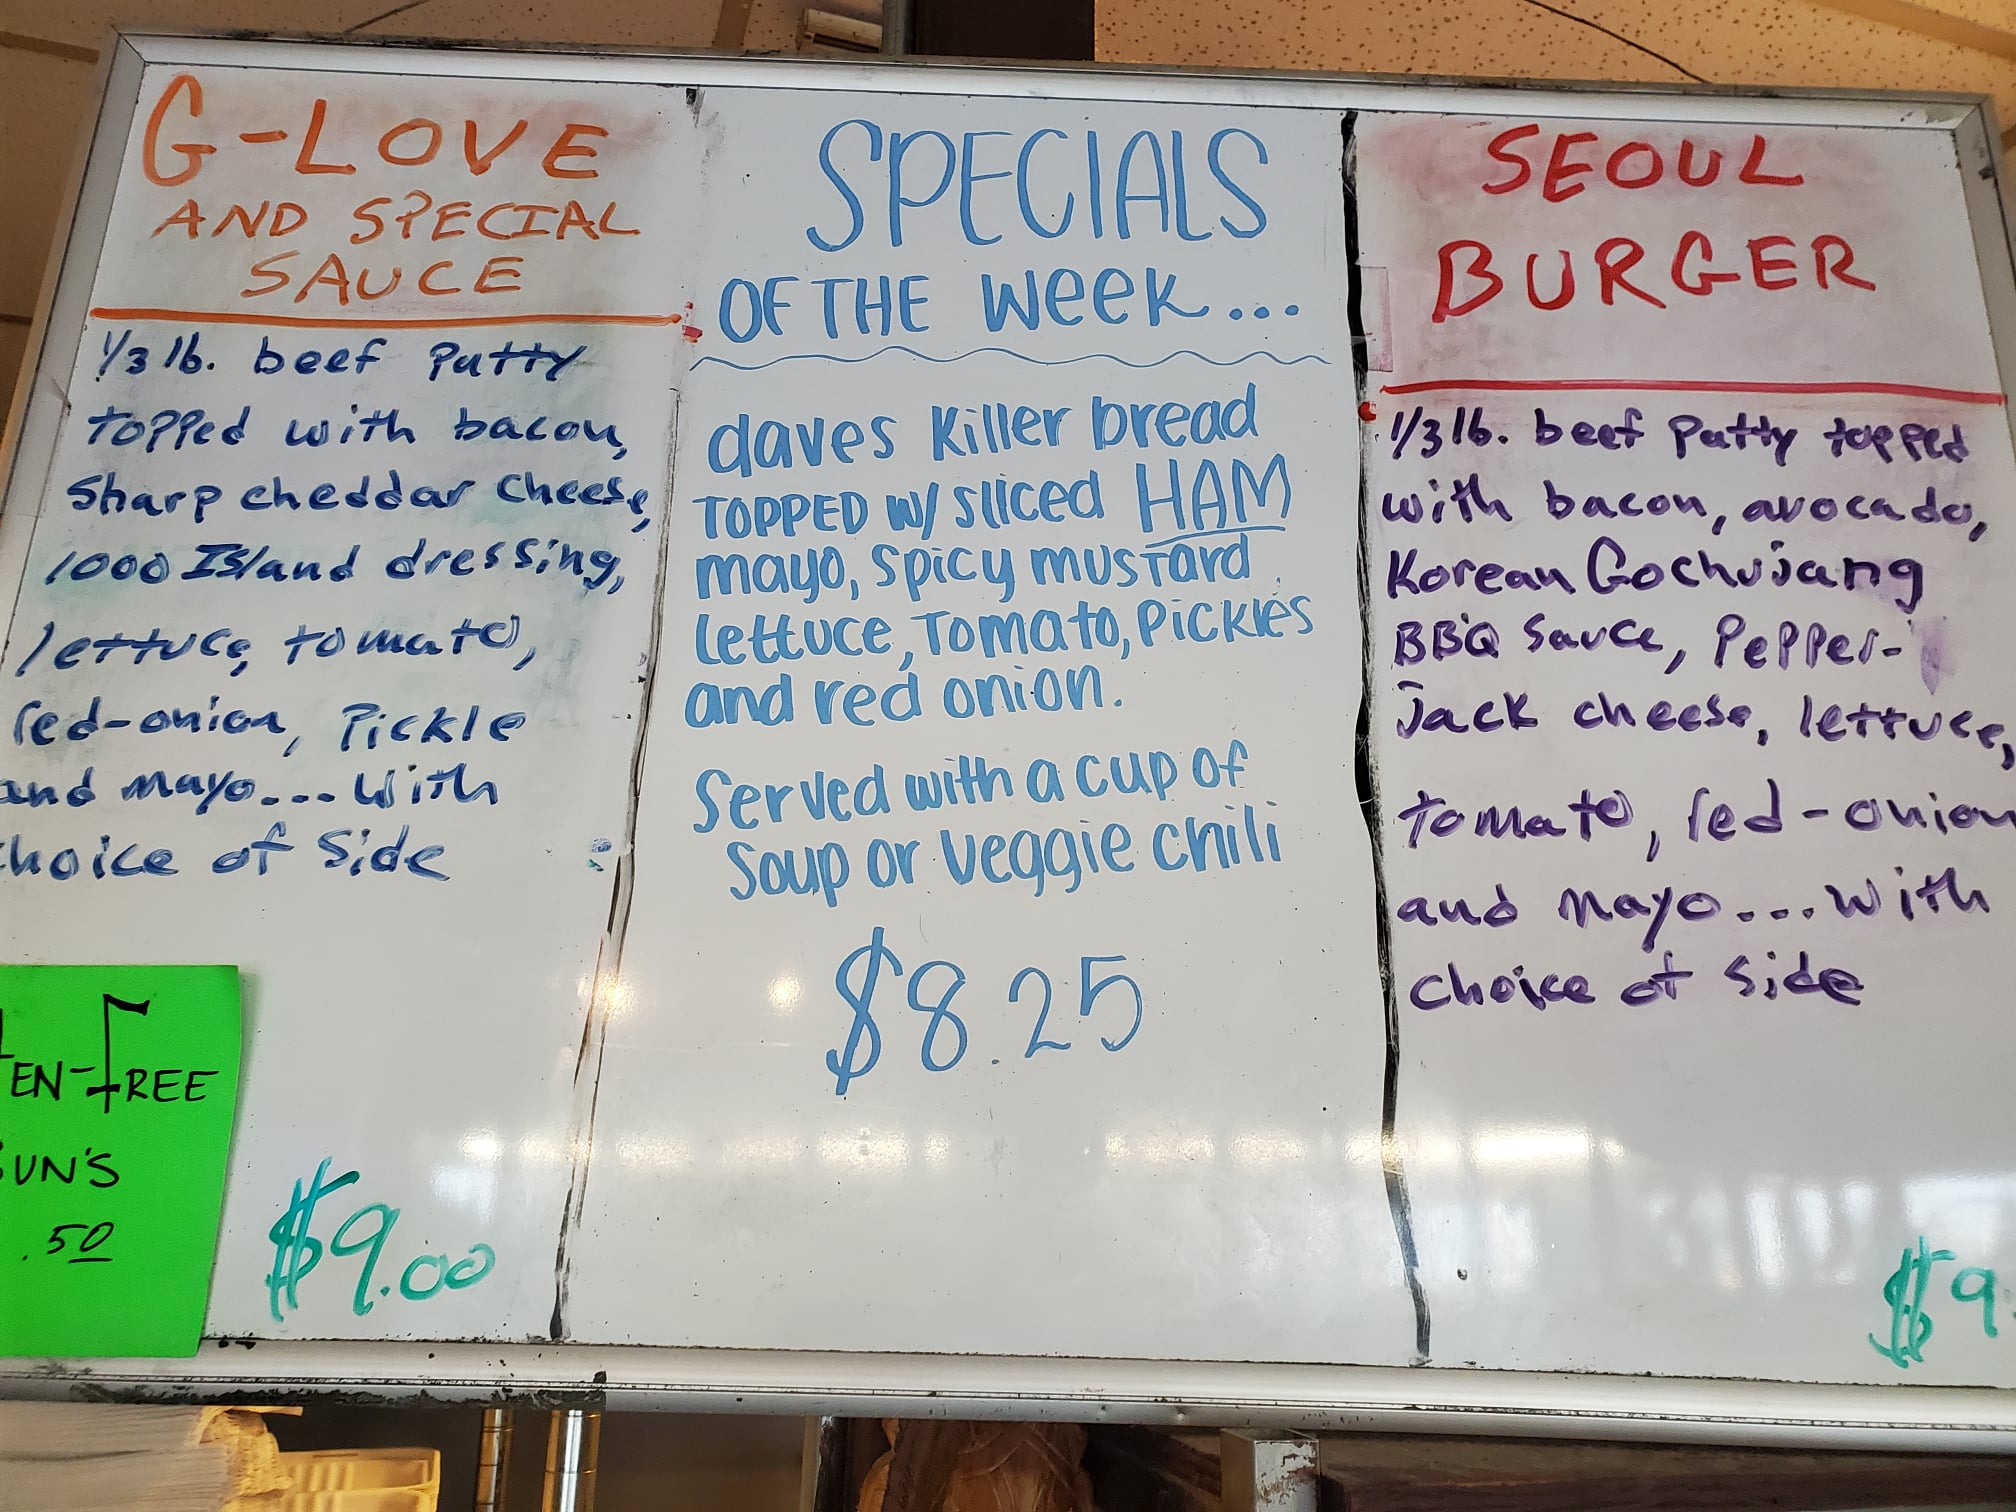 G-LOVE
AND SPECIAL
SAUCE
1/3 lb. beef patty
topped with bacon,
Sharp cheddar cheese,
1000 Island dressing,
lettuce, tomato,
red-onion, Pickle
and mayo... with
choice of side
$9.00
EN-FREE
UN'S
.50
SPECIALS
OF THE WEEK...
daves Killer bread
TOPPED W/ sliced HAM
mayo, spicy mustard
lettuce, Tomato, Pickles
and red onion.
Served with a cup of
Soup or veggie chili
$8.25
SEOUL
BURGER
1/3 lb. beef patty topped
with bacon, avocado,
Korean Gochujang
BBQ Sauce, Pepper-
Jack cheese, lettuce,
tomato, red-onion
and mayo... with
choice of side
$9.